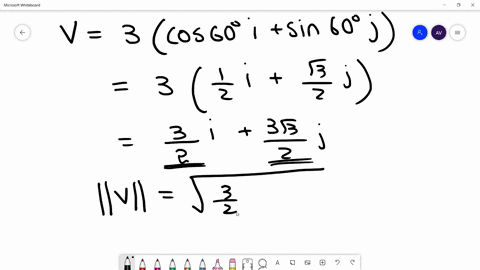 Microsoft Whiteboard
AV
V = 3 (cos60° i + sin 60° j)
= 3 ( 1/2 i + √3/2 j )
= 3/2 i + 3√3/2 j
||V|| = √ 3/2